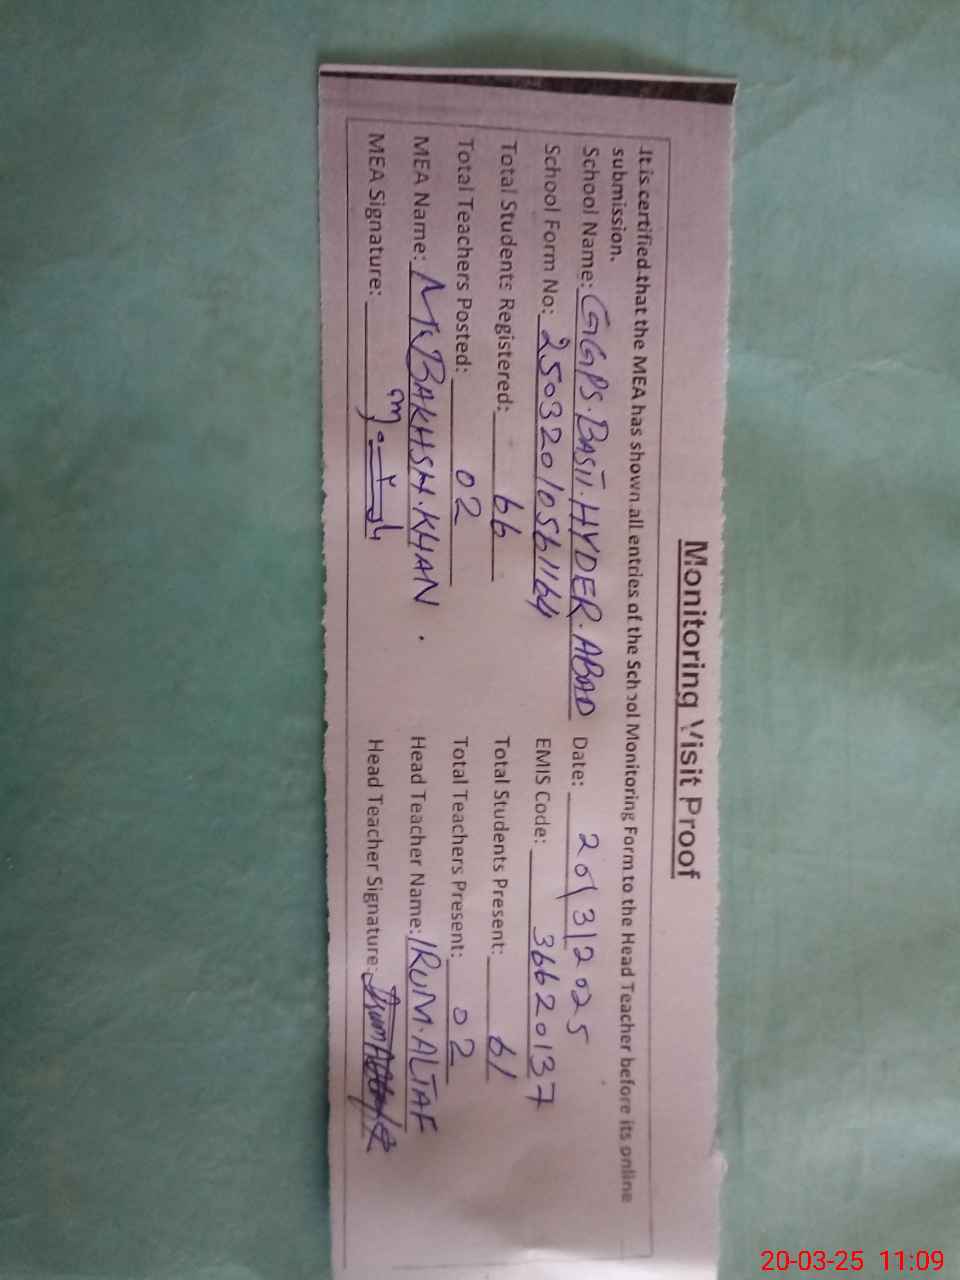 Monitoring Visit Proof
It is certified that the MEA has shown all entries of the School Monitoring Form to the Head Teacher before its online
submission.
School Name: GGPS.BASTI.HYDER.ABAD Date: 20/3/2025
School Form No: 25032010561164 EMIS Code: 36620137
Total Students Registered: 66 Total Students Present: 61
Total Teachers Posted: 02 Total Teachers Present: 02
MEA Name: M.BAKHSH.KHAN. Head Teacher Name: IRUM.ALTAF
MEA Signature: Head Teacher Signature: Irum Altaf
20-03-25 11:09